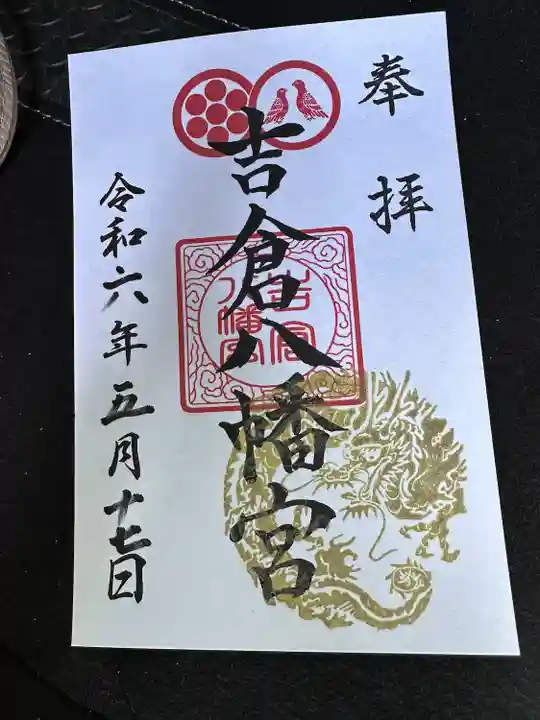 奉拝
吉倉八幡宮
吉倉
八幡宮
令和六年五月十七日